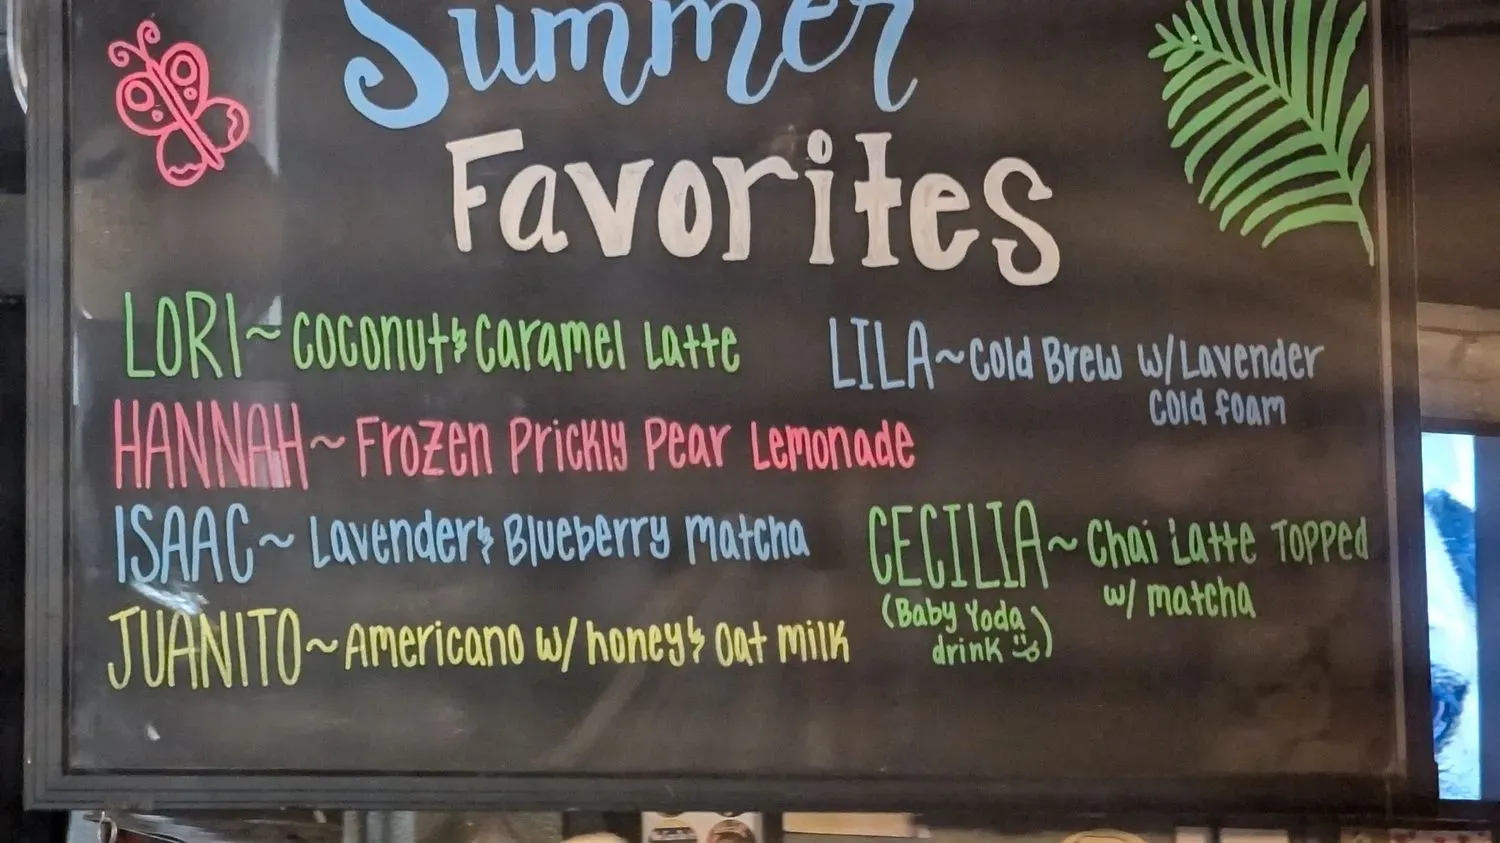 Summer
Favorites
LORI~ Coconut & Caramel Latte
LILA~Cold Brew w/Lavender
Cold Foam
HANNAH~ Frozen Prickly Pear Lemonade
ISAAC~ Lavender & Blueberry Matcha
CECILIA~ Chai Latte Topped
w/ matcha
(Baby Yoda
drink)
JUANITO~Americano w/ honey & Oat Milk